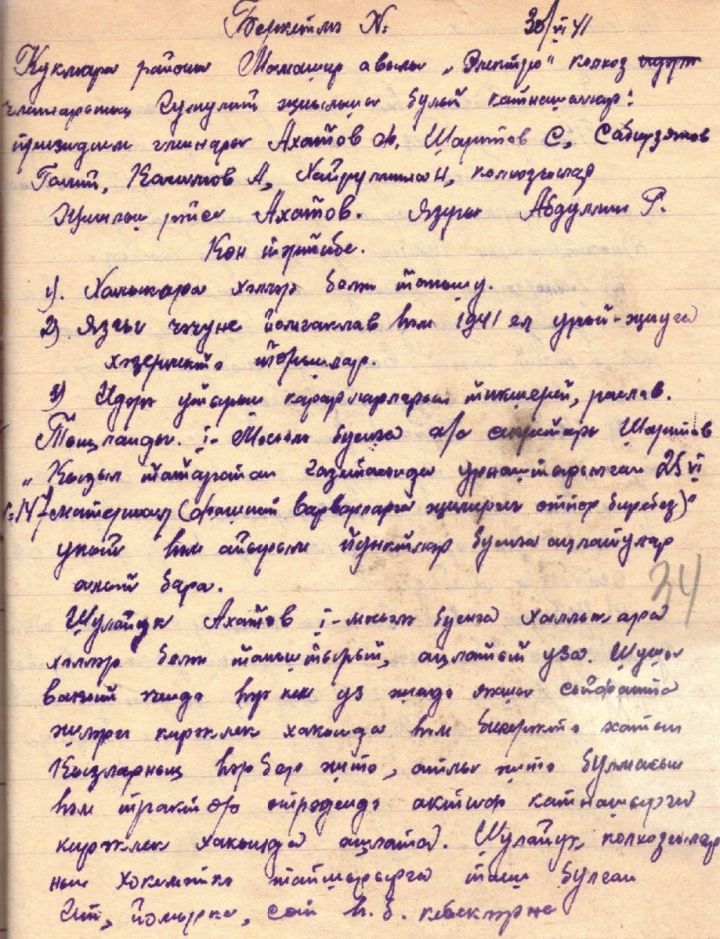 Беркетмә №. 30/VI 41
Кукмара районы Мамашир авылы „Электро“ колхоз идарә
членнарының гумуми җыелышы булып катнашалар:
призидиум членнары Ахатов Ф. Шарипов С, Сабирзянов
Галип, Касимов А, Хайруллина Н, колхозчылар
Җыелыш рәисе Ахатов. Язучы Абдуллин Р.
Көн тәртибе.
1). Халыкара хәлләр белән танышу.
2) Язгы чәчүне йомгаклав һәм 1941 ел урып-җиуга
хәзерлектә торышлар.
3) Идарә утырыш карарларларын тикшереп, раслав.
Тыңланды. 1- Мәсьәлә буенча а/с сикритаре Шарипов
„Кызыл татарстан газитасында урнаштырылган 25 VI
№147 матерьял (фашист варварларга җимергеч отпор бирәбез)“
укып һәм айырым пунктлар буенча аңлатулар
алып бара.
Шулайук Ахатов 1-мәсьәлә буенча халыкара
хәлләр белән таныштырып, аңлатып уза. Шушы
вакыт эчендә һәркем уз эшендә яхшы сыйфатта
эшләргә кирәклек хакында һәм бигеректә хатын
Кызларның һәрбер эштә, атлы эштә булмасын
һәм трактор отрядында актив катнашырга
кирәклек хакында аңлата. Шулайук колхозчылар
ның хөкүмәткә тапшырырга тиеш булган
Ит, йомырка, сөт һ.б. кебекләрне